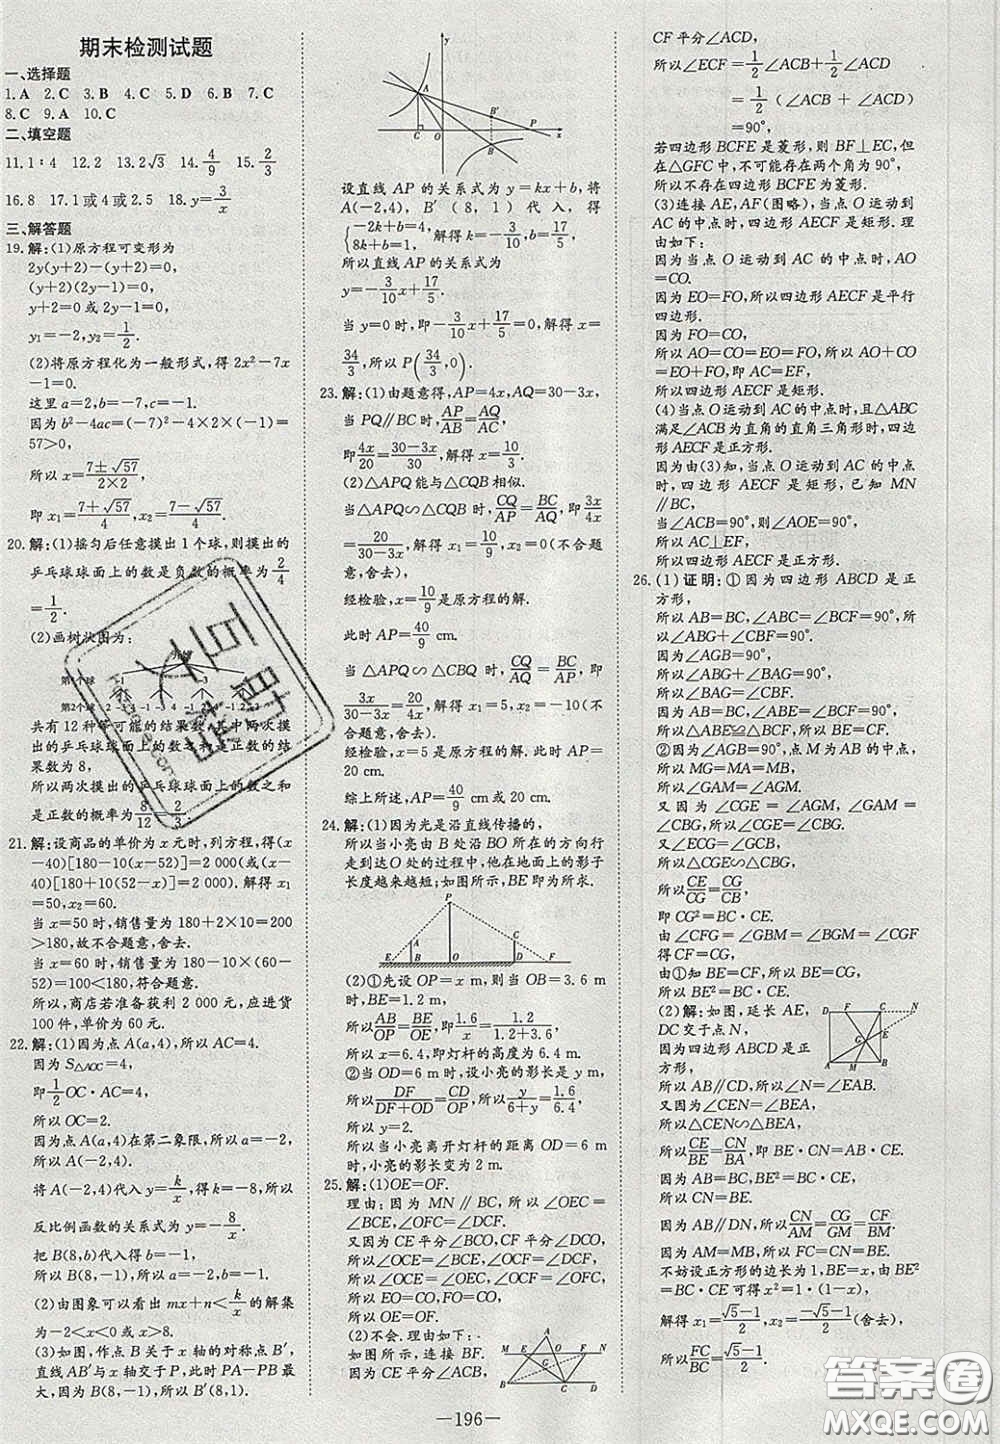 期末检测试题
一、选择题
1.A 2.C 3.B 4.C 5.D 6.B 7.C
8.C 9.A 10.C
二、填空题
11.1∶4 12.2 13.2√3 14.4/9 15.2/3
16.8 17.1或4或2.5 18.y=3/x
三、解答题
19.解:(1)原方程可变形为
2y(y+2)-(y+2)=0,
(y+2)(2y-1)=0,
y+2=0或2y-1=0,
y₁=-2,y₂=1/2.
(2)将原方程化为一般形式,得2x²-7x
-1=0.
这里a=2,b=-7,c=-1.
因为b²-4ac=(-7)²-4×2×(-1)=
57>0,
所以x=(7±√57)/(2×2),
即x₁=(7+√57)/4,x₂=(7-√57)/4.
20.解:(1)摇匀后任意摸出1个球,则摸出的
乒乓球球面上的数是负数的概率为2/4
=1/2.
(2)画树状图为:
共有12种等可能的结果数,其中两次摸
出的乒乓球球面上的数之和是正数的结
果数为8,
所以两次摸出的乒乓球球面上的数之和
是正数的概率为8/12=2/3.
21.解:设商品的单价为x元时,列方程,得(x
-40)[180-10(x-52)]=2 000(或(x
-40)[180+10(52-x)]=2 000).解得x₁
=50,x₂=60.
当x=50时,销售量为180+2×10=200
>180,故不合题意,舍去.
当x=60时,销售量为180-10(60-
52)=100<180,符合题意.
所以,商店若准备获利2 000元,应进货
100件,单价为60元.
22.解:(1)因为点A(a,4),所以AC=4.
因为S△AOC=4,
即1/2OC·AC=4,
所以OC=2.
因为点A(a,4)在第二象限,所以a=-2,
所以A(-2,4).
将A(-2,4)代入y=k/x,得k=-8,所以
反比例函数的关系式为y=-8/x.
把B(8,b)代入得b=-1,
所以B(8,-1),所以a=-2,b=-1.
(2)由图象可以看出mx+n<k/x的解集
为-2<x<0或x>8.
(3)如图,作点B关于x轴的对称点B′,
直线AB′与x轴交于P,此时PA-PB最
大,因为B(8,-1),所以B′(8,1).
y
A
B′
P
C O x
B
设直线AP的关系式为y=kx+b,将
A(-2,4),B′(8,1)代入,得
{-2k+b=4, 8k+b=1,解得k=-3/10,b=17/5,
所以直线AP的关系式为
y=-3/10x+17/5,
当y=0时,即-3/10x+17/5=0,解得x=
34/3,所以P(34/3,0).
23.解:(1)由题意得,AP=4x,AQ=30-3x,
当PQ∥BC时,AP/AB=AQ/AC,
即4x/20=(30-3x)/30,解得x=10/3.
(2)△APQ能与△CQB相似.
当△APQ∽△CQB时,CQ/AP=BC/AQ,即3x/4x
=20/(30-3x),解得x₁=10/9,x₂=0(不合题
意,舍去),
经检验,x=10/9是原方程的解.
此时AP=40/9 cm.
当△APQ∽△CBQ时,CQ/AQ=BC/AP,即
3x/(30-3x)=20/4x,解得x₁=5,x₂=-10(不
合题意,舍去).
经检验,x=5是原方程的解.此时AP=
20 cm.
综上所述,AP=40/9 cm或20 cm.
24.解:(1)因为光是沿直线传播的,
所以当小亮由B处沿BO所在的方向行
走到达O处的过程中,他在地面上的影子
长度越来越短;如图所示,BE即为所求.
P
A C
E B O D F
(2)①先设OP=x m,则当OB=3.6 m
时,BE=1.2 m,
所以AB/OP=BE/OE,所以1.6/x=1.2/(1.2+3.6),
所以x=6.4,即灯杆的高度为6.4 m.
②当OD=6 m时,设小亮的影长是y m,
所以DF/(DF+OD)=CD/OP,所以y/(6+y)=1.6/6.4,
所以y=2.
所以当小亮离开灯杆的距离OD=6 m
时,小亮的影长变为2 m.
25.解:(1)OE=OF.
理由:因为MN∥BC,所以∠OEC=
∠BCE,∠OFC=∠DCF.
又因为CE平分∠BCO,CF平分∠DCO,
所以∠OCE=∠BCE,∠OCF=∠DCF,
所以∠OCE=∠OEC,∠OCF=∠OFC,
所以EO=CO,FO=CO,
所以OE=OF.
(2)不会.理由如下:
如图所示,连接BF.因为CE平分∠ACB,
A
M E O F N
G
B C D
CF平分∠ACD,
所以∠ECF=1/2∠ACB+1/2∠ACD
=1/2(∠ACB+∠ACD)
=90°,
若四边形BCFE是菱形,则BF⊥EC,但
在△GFC中,不可能存在两个角为90°,
所以不存在四边形BCFE为菱形.
(3)连接AE,AF(图略),当点O运动到
AC的中点时,四边形AECF是矩形.理
由如下:
因为当点O运动到AC的中点时,AO=
CO.
因为EO=FO,所以四边形AECF是平行
四边形.
因为FO=CO,
所以AO=CO=EO=FO,所以AO+CO=
EO+FO,即AC=EF,
所以四边形AECF是矩形.
(4)当点O运动到AC的中点时,且△ABC
满足∠ACB为直角的直角三角形时,四边
形AECF是正方形.
因为由(3)知,当点O运动到AC的中点
时,四边形AECF是矩形,已知MN
∥BC,
当∠ACB=90°,则∠AOE=90°,
所以AC⊥EF,
所以四边形AECF是正方形.
26.(1)证明:①因为四边形ABCD是正
方形,
所以AB=BC,∠ABC=∠BCF=90°,
所以∠ABG+∠CBF=90°.
因为∠AGB=90°,
所以∠ABG+∠BAG=90°,
所以∠BAG=∠CBF.
所以△ABE≌△BCF,所以BE=CF.
②因为∠AGB=90°,点M为AB的中点,
所以MG=MA=MB,
所以∠GAM=∠AGM.
又因为∠CGE=∠AGM,∠GAM=
∠CBG,所以∠CGE=∠CBG.
又∠ECG=∠GCB,
所以△CGE∽△CBG,
所以CE/CG=CG/CB,
即CG²=BC·CE.
由∠CFG=∠GBM=∠BGM=∠CGF
得CF=CG,
由①知BE=CF,所以BE=CG,
所以BE²=BC·CE.
(2)解:如图,延长AE,
DC交于点N,
因为四边形ABCD是正
方形,
D F C N
G E
A M B
所以AB∥CD,所以∠N=∠EAB.
因为∠CEN=∠BEA,
所以△CEN∽△BEA,
所以CE/BE=CN/BA,即BE·CN=AB·CE.
因为AB=BC,BE²=BC·CE,
所以CN=BE.
因为AB∥DN,所以CN/AM=CG/GM=CF/BM,
因为AM=MB,所以FC=CN=BE,
不妨设正方形的边长为1,BE=x,由
BE²=BC·CE可得x²=1·(1-x),
解得x₁=(√5-1)/2,x₂=(-√5-1)/2(舍去),
所以FC/BC=(√5-1)/2.
—196—
答案圈
MXQE.COM